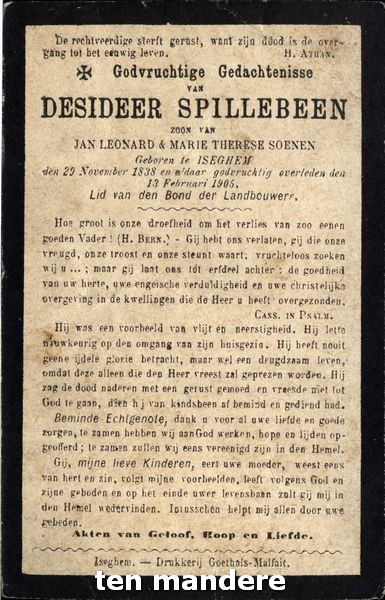 De rechtveerdige sterft gerust, want zijn dood is de over-
gang tot het eeuwig leven. H. Athan.
✠ Godvruchtige Gedachtenisse
VAN
DESIDEER SPILLEBEEN
ZOON VAN
JAN LEONARD & MARIE THERESE SOENEN
Geboren te ISEGHEM
den 29 November 1838 en aldaar godvruchtig overleden den
13 Februari 1905.
Lid van den Bond der Landbouwers.
Hoe groot is onze droefheid om het verlies van zoo eenen
goeden Vader! (H. Bern.) - Gij hebt ons verlaten, gij die onze
vreugd, onze troost en onze steunt waart; vruchteloos zoeken
wij u...; maar gij laat ons tot erfdeel achter: de goedheid
van uw herte, uwe engelsche verduldigheid en uwe christelijke
overgeving in de kwellingen die de Heer u heeft overgezonden.
Cass. in Psalm.
Hij was een voorbeeld van vlijt en neerstigheid. Hij lette
nauwkeurig op den omgang van zijn huisgezin. Hij heeft nooit
geene ijdele glorie betracht, maar wel een deugdzaam leven,
omdat deze alleen die den Heer vreest zal geprezen worden. Hij
zag de dood naderen met een gerust gemoed en vreesde niet tot
God te gaan, dien hij van kindsbeen af bemind en gediend had.
Beminde Echtgenote, dank u voor al uwe liefde en goede
zorgen, te zamen hebben wij aan God werken, hope en lijden op-
geofferd; te zamen zullen wij eens vereenigd zijn in den Hemel.
Gij, mijne lieve Kinderen, eert uwe moeder, weest eens
van hert en zin, volgt mijne voorbeelden, leeft volgens God en
zijne geboden en op het einde uwer levensbaan zult gij mij in
den Hemel wedervinden. Intusschen helpt mij allen door uwe
gebeden.
Akten van Geloof, Hoop en Liefde.
Iseghem. — Drukkerij Goethals-Malfait.
ten mandere